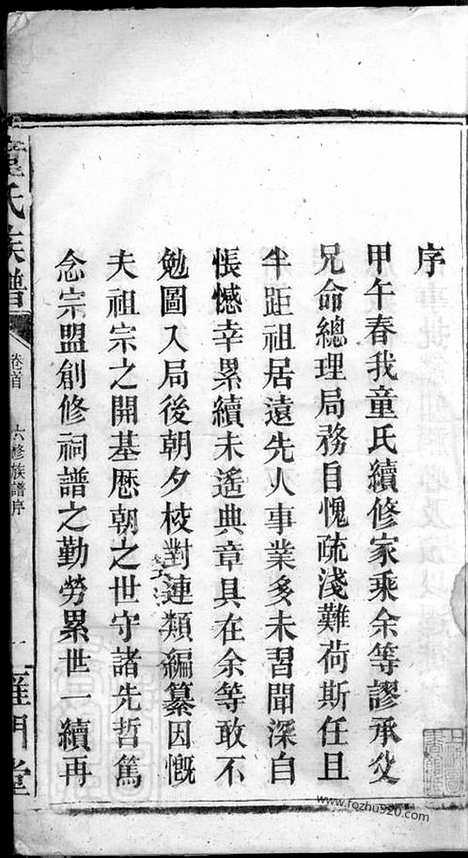 序
甲午春我童氏續修家乘余等謬承父
兄命總理局務自愧疏淺難荷斯任且
半距祖居遠先人事業多未習聞深自
悵憾幸累續未遙典章具在余等敢不
勉圖入局後朝夕校對連類編纂因慨
夫祖宗之開基歷朝之世守諸先哲篤
念宗盟創修祠譜之勤勞累世一續再
童氏族譜
卷首
六修族譜序
一
雁門堂
www.fozhu920.com